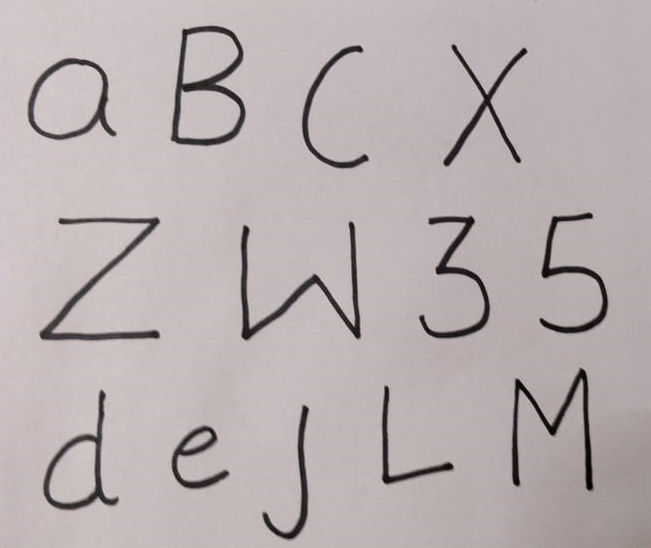 a B C X
Z W 3 5
d e J L M